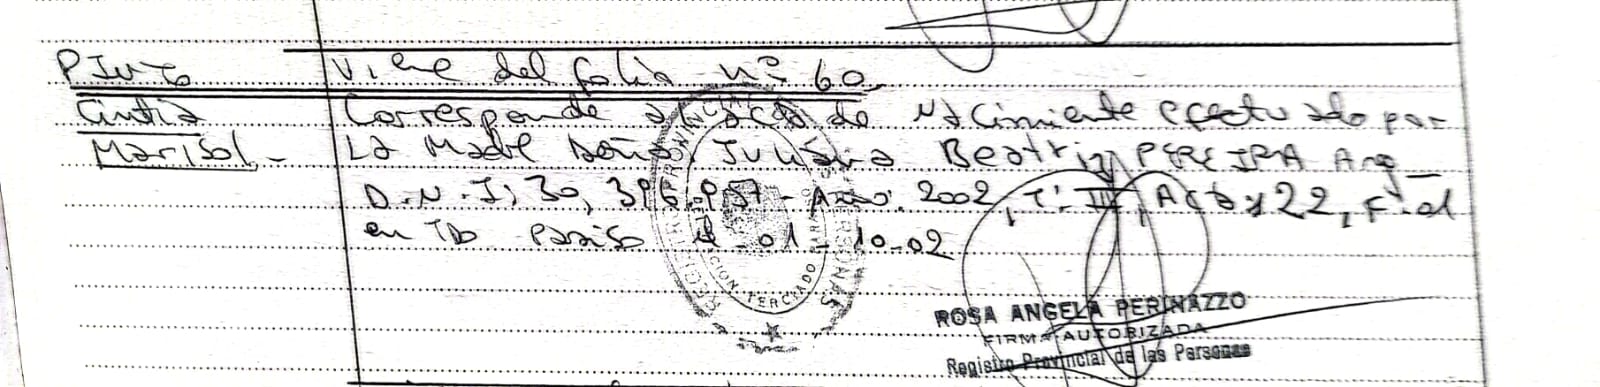 PINTO Viene del folio nº 60
Cintia Corresponde a acta de Nacimiento efectuado por
Marisol.- La Madre Doña Juliana Beatriz PEREIRA Arg_
D.N.I; 30, 396.957 - Año: 2002, T: III, Acta 22, F. 21
en 4 - 01 - 10-02
REGISTRO PROVINCIAL PERSONAS
ROSA ANGELA PERINAZZO
FIRMA AUTORIZADA
Registro Provincial de las Personas